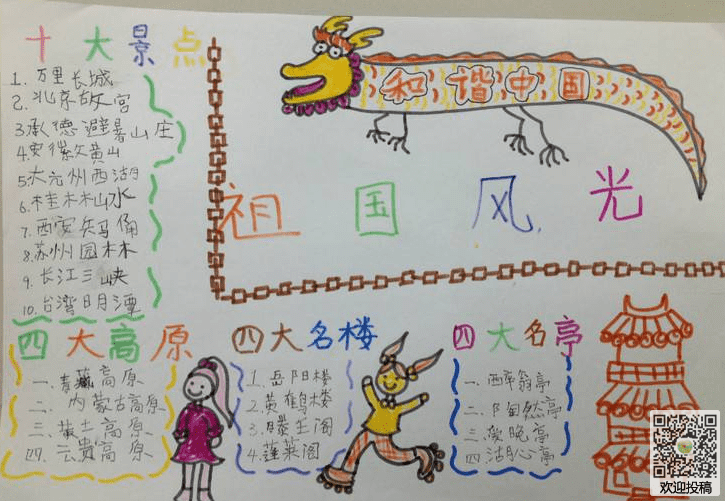 十大景点
1. 万里长城
2. 北京故宫
3 承德避暑山庄
4 安徽黄山
5 杭州西湖
6. 桂林山水
7. 西安兵马俑
8. 苏州园林
9. 长江三峡
10. 台湾日月潭
和谐中国
祖国风光
四大高原
一. 青藏高原
二. 内蒙古高原
三. 黄土高原
四. 云贵高原
四大名楼
1. 岳阳楼
2. 黄鹤楼
3. 滕王阁
4. 蓬莱阁
四大名亭
一. 醉翁亭
二. 陶然亭
三. 爱晚亭
四. 湖心亭
欢迎投稿